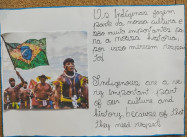 Os Indígenas fazem
parte da nossa cultura e
são muito importantes pa
ra a nossa história,
por isso merecem respei
to!
Indigenous are a ve
ry important part
of our culture and
history, because of that
They need respect.